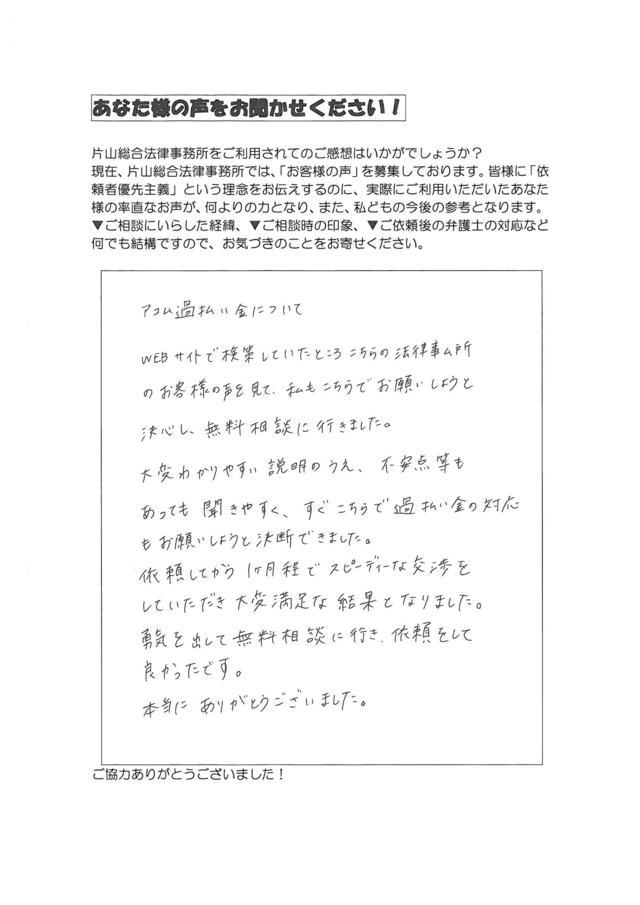 あなた様の声をお聞かせください！
片山総合法律事務所をご利用されてのご感想はいかがでしょうか？
現在、片山総合法律事務所では、「お客様の声」を募集しております。皆様に「依
頼者優先主義」という理念をお伝えするのに、実際にご利用いただいたあなた
様の率直なお声が、何よりの力となり、また、私どもの今後の参考となります。
▼ご相談にいらした経緯、▼ご相談時の印象、▼ご依頼後の弁護士の対応など
何でも結構ですので、お気づきのことをお寄せください。
アコム過払い金について
WEBサイトで検策していたところこちらの法律事ム所
のお客様の声を見て、私もこちらでお願いしようと
決心し、無料相談に行きました。
大変わかりやすい説明のうえ、不安点等も
あっても聞きやすく、すぐこちらで過払い金の対応
もお願いしようと決断できました。
依頼してから1ヶ月程でスピーディーな交渉を
していただき大変満足な結果となりました。
勇気を出して無料相談に行き、依頼をして
良かったです。
本当にありがとうございました。
ご協力ありがとうございました！